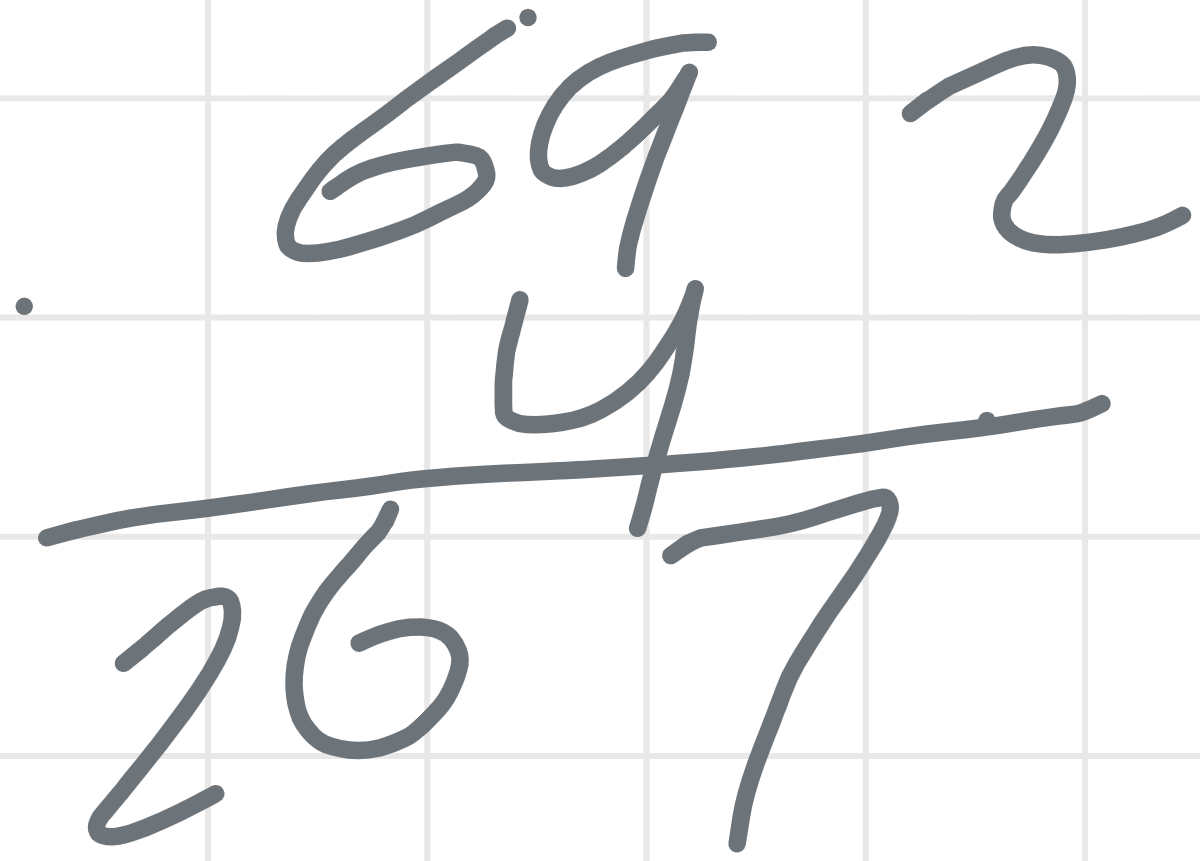 69 2
4
267